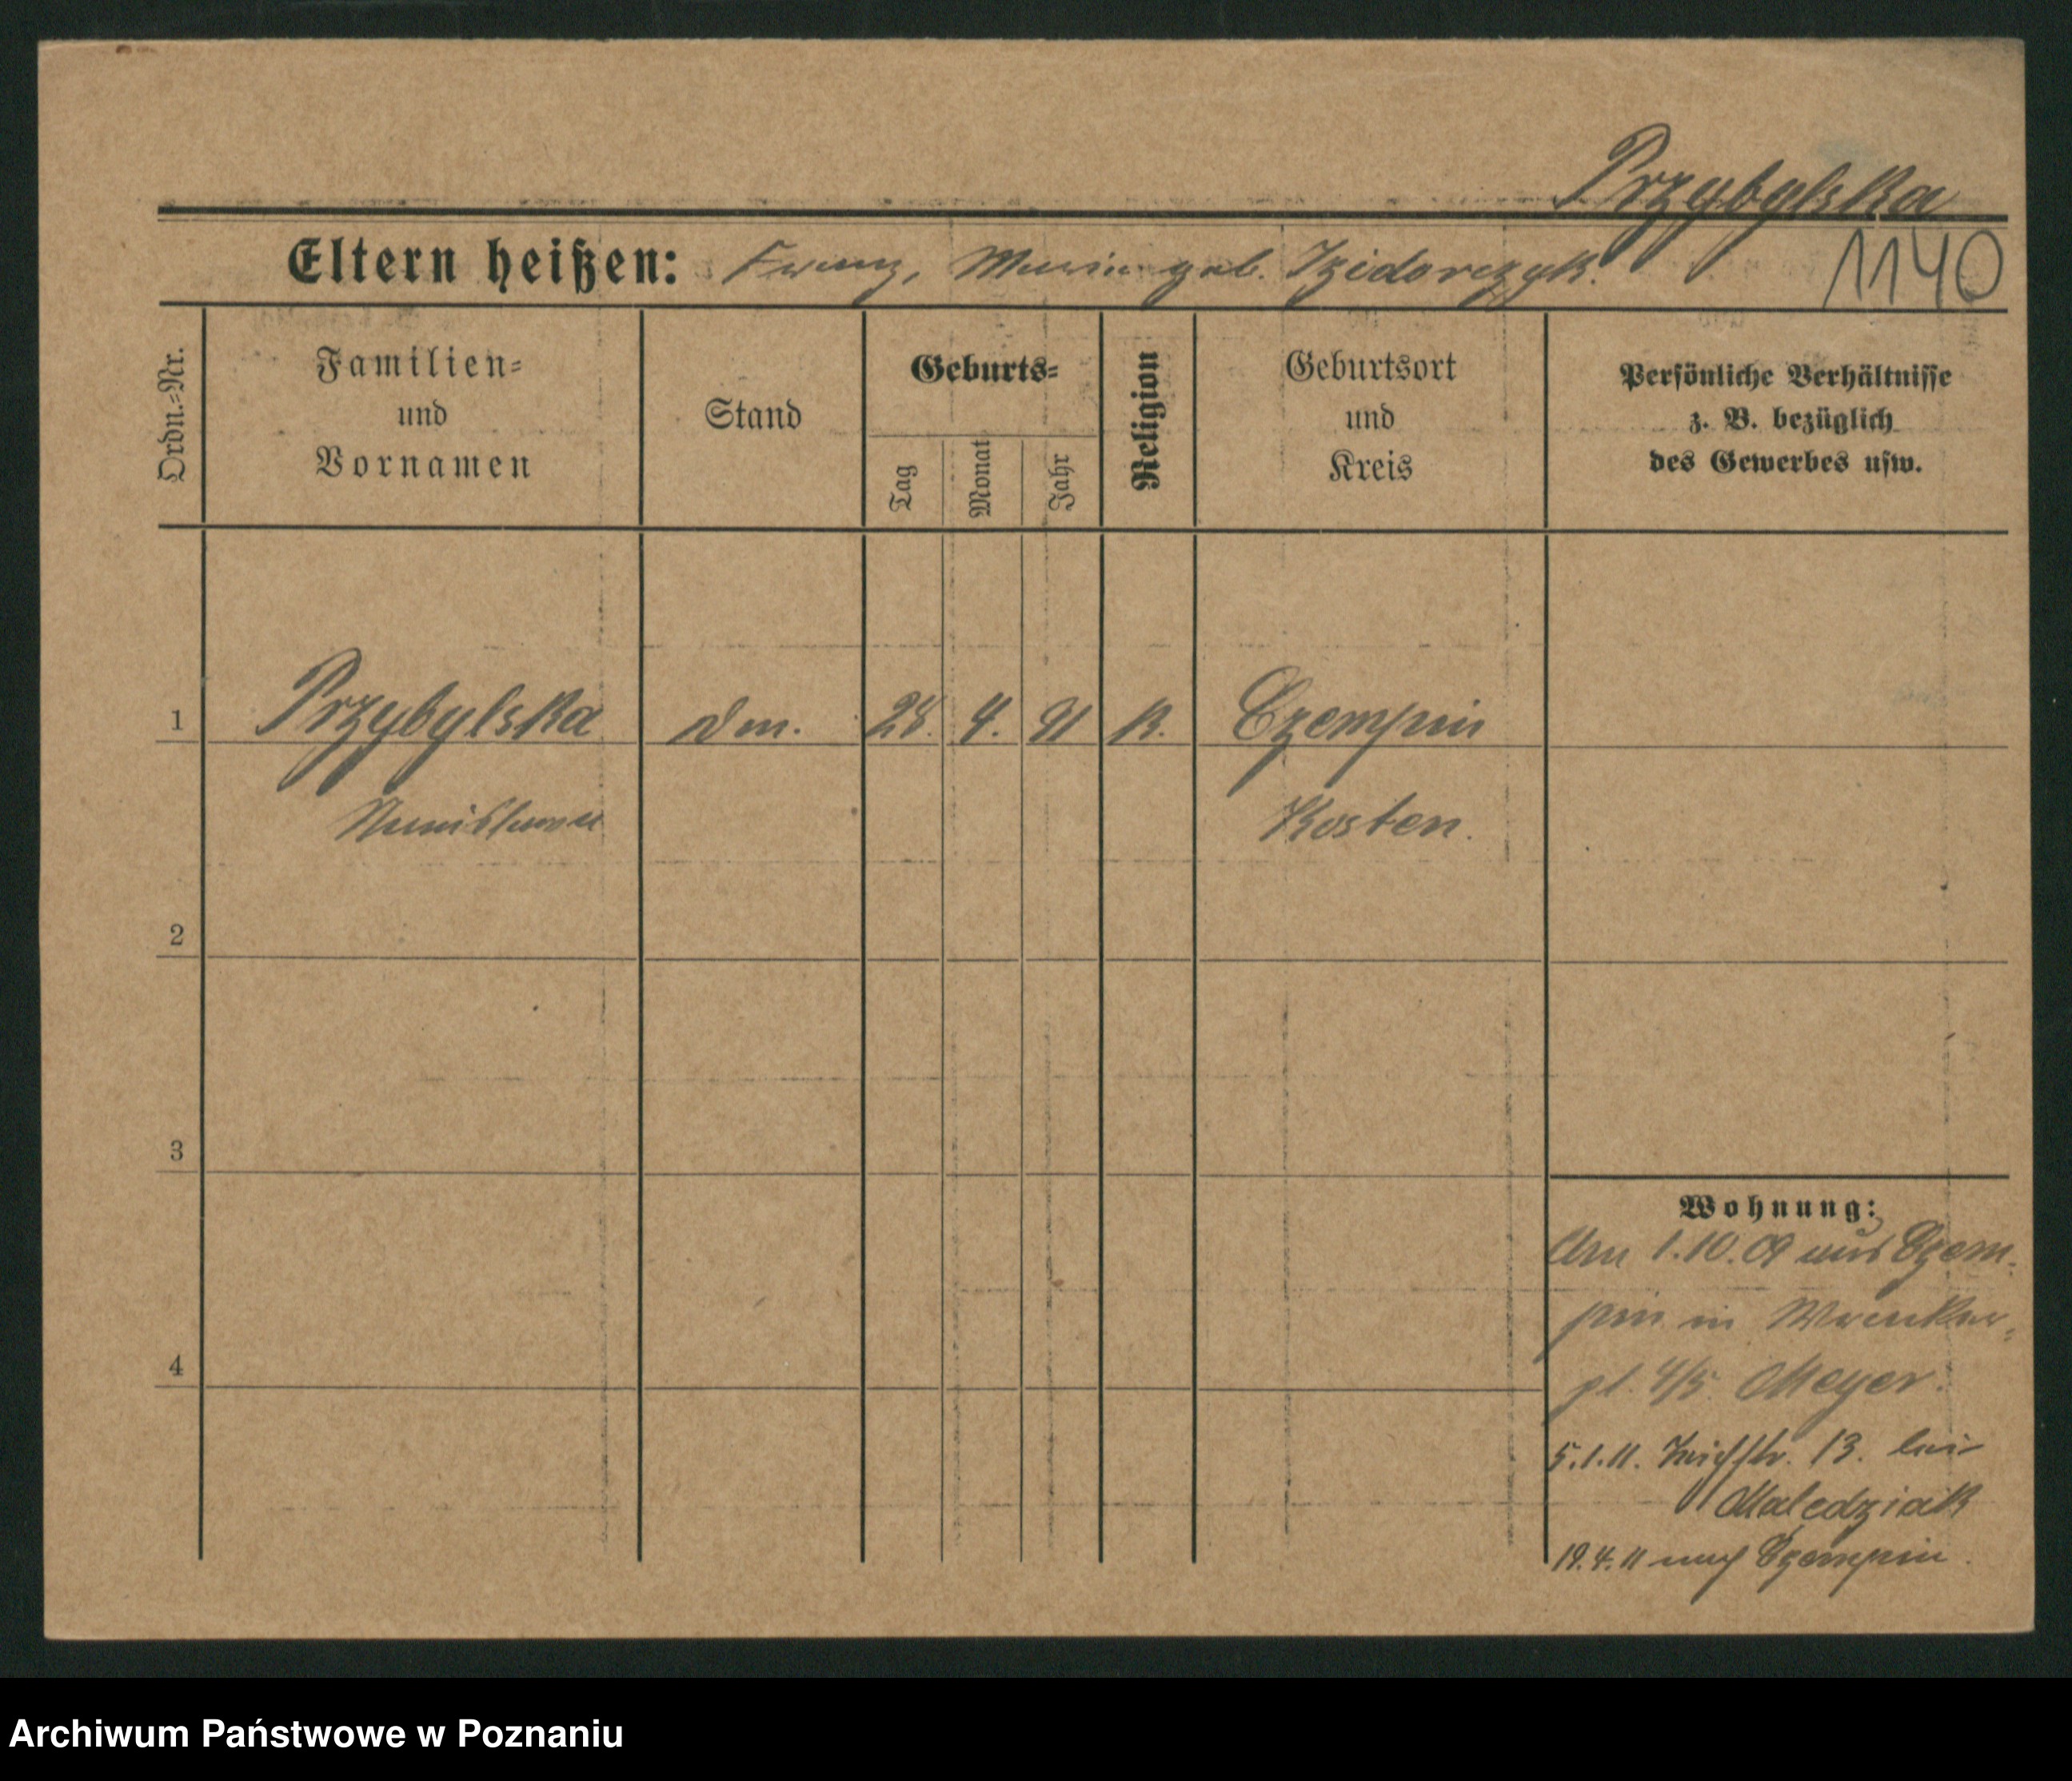 Przybylska
Eltern heißen: Franz, Maria geb. Izidorczyk.
1140
Ordn.-Nr.
Familien-
und
Vornamen
Stand
Geburts-
Tag
Monat
Jahr
Religion
Geburtsort
und
Kreis
Persönliche Verhältnisse
z. B. bezüglich
des Gewerbes usw.
1 Przybylska 28. 4. 91 K. Czempin
Kosten.
2
3
4
Wohnung:
Am 1.10.09 aus Czem-
pin in Wronker-
pl. 4/5 Meyer.
5.1.11. 13. bei
Maledziak
19.4.11 nach Czempin.
Archiwum Państwowe w Poznaniu